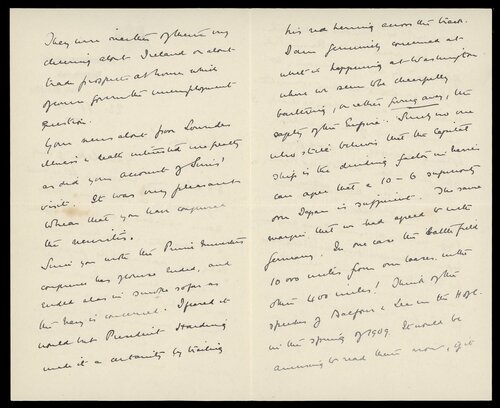 They were neither of them very
cheering about Ireland or about
trade prospects at home which
of course governs the unemployment
question.
Your news about poor Lowndes
illness & death interested me greatly
as did your account of Sims'
visit. It was very pleasant
to hear that you have conquered
the neuritis.
Since you wrote the Prime Ministers
conference has of course ended, and
ended alas in smoke so far as
the Navy is concerned. I feared it
would but President Harding
made it a certainty by trailing
his red herring across the track.
I am genuinely concerned at
what is happening at Washington
where we seem to be cheerfully
bartering, or rather giving away, the
safety of the Empire. Surely no one
who still believes that the Capital
Ship is the deciding factor in
can agree that a 10-6 superiority
over Japan is sufficient. The same
margin that we had agreed to with
Germany. In one case the battlefield
10 000 miles from our bases, in the
other 400 miles! Think of the
speeches of Balfour & Lee in the H of C.
in the spring of 1909. It would be
amusing to read them now, if it